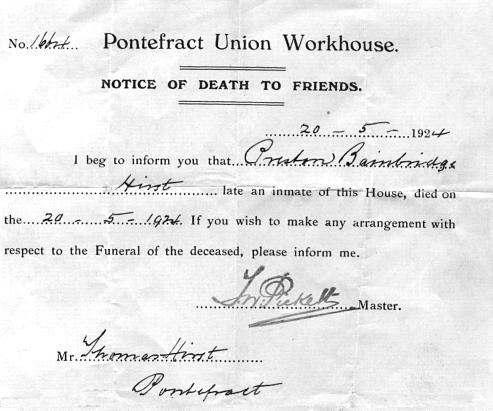 No. Pontefract Union Workhouse.
NOTICE OF DEATH TO FRIENDS.
20 - 5 - 1924
I beg to inform you that Preston Bainbridge
Hirst late an inmate of this House, died on
the 20 - 5 - 1924. If you wish to make any arrangement with
respect to the Funeral of the deceased, please inform me.
Pickett Master.
Mr. Thomas Hirst
Pontefract